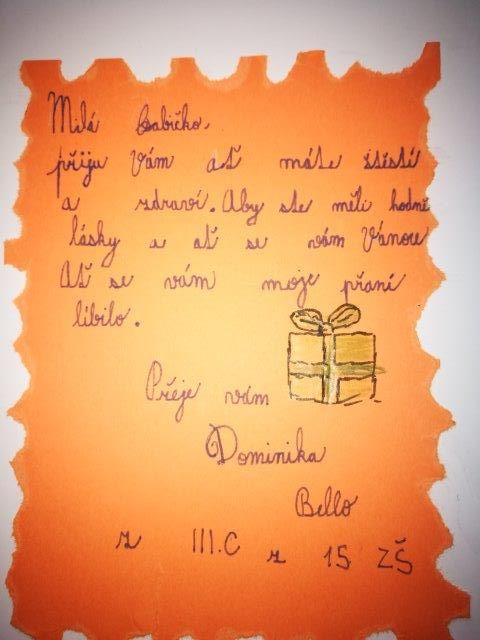 Milá babičko,
přiju Vám ať máte štěstí
a zdraví. Aby ste měli hodně
lásky a ať se vám Vánoce
Ať se vám moje přaní
líbilo.
Přeje vám
Dominika
Bello
z III.C z 15 ZŠ